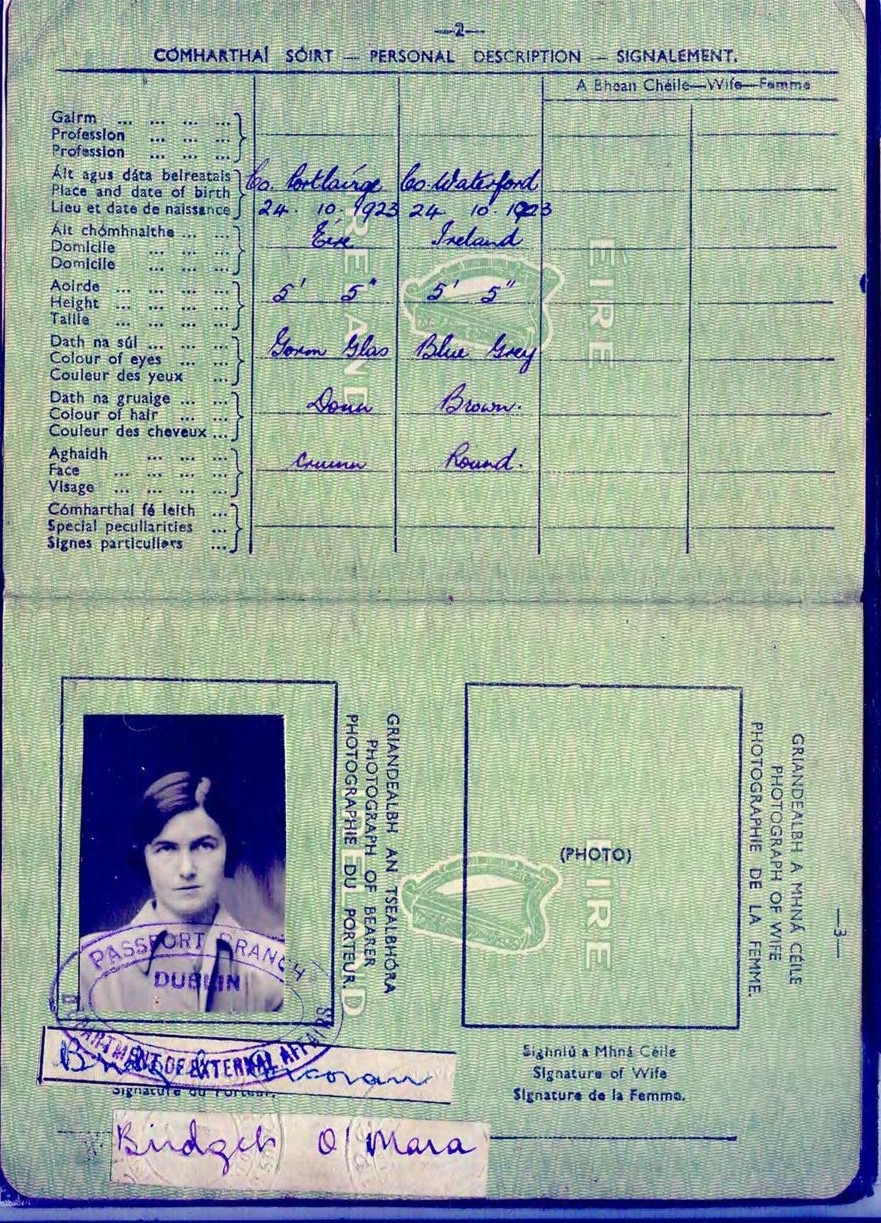 —2—
CÓMHARTHAÍ SÓIRT — PERSONAL DESCRIPTION — SIGNALEMENT.
A Bhean Chéile—Wife—Femme
Gairm ... ... ... ...
Profession ... ... ...
Profession ... ... ...
Áit agus dáta beireatais Co. Portláirge Co. Waterford
Place and date of birth
Lieu et date de naissance 24. 10. 1923 24. 10. 1923
Áit chómhnaithe ... ... Éire Ireland
Domicile ... ... ...
Domicile ... ... ...
Aoirde ... ... ... ... 5' 5" 5' 5"
Height ... ... ... ...
Taille ... ... ... ...
Dath na súl ... ... ... Gorm Glas Blue Grey
Colour of eyes ... ...
Couleur des yeux ...
Dath na gruaige ... ... Donn Brown.
Colour of hair ... ...
Couleur des cheveux ...
Aghaidh ... ... ... Cruinn Round.
Face ... ... ... ...
Visage ... ... ... ...
Cómharthaí fé leith ...
Special peculiarities ...
Signes particuliers ...
IRELAND
ÉIRE
GRIANDEALBH AN TSEALBHÓRA
PHOTOGRAPH OF BEARER
PHOTOGRAPHIE DU PORTEUR.
IRELAND
(PHOTO)
ÉIRE
GRIANDEALBH A MHNÁ CÉILE
PHOTOGRAPH OF WIFE
PHOTOGRAPHIE DE LA FEMME.
—3—
PASSPORT BRANCH
DUBLIN
DEPARTMENT OF EXTERNAL AFFAIRS
Signature du Porteur.
Síghniú a Mhná Céile
Signature of Wife
Signature de la Femme.
Bridget O'Mara